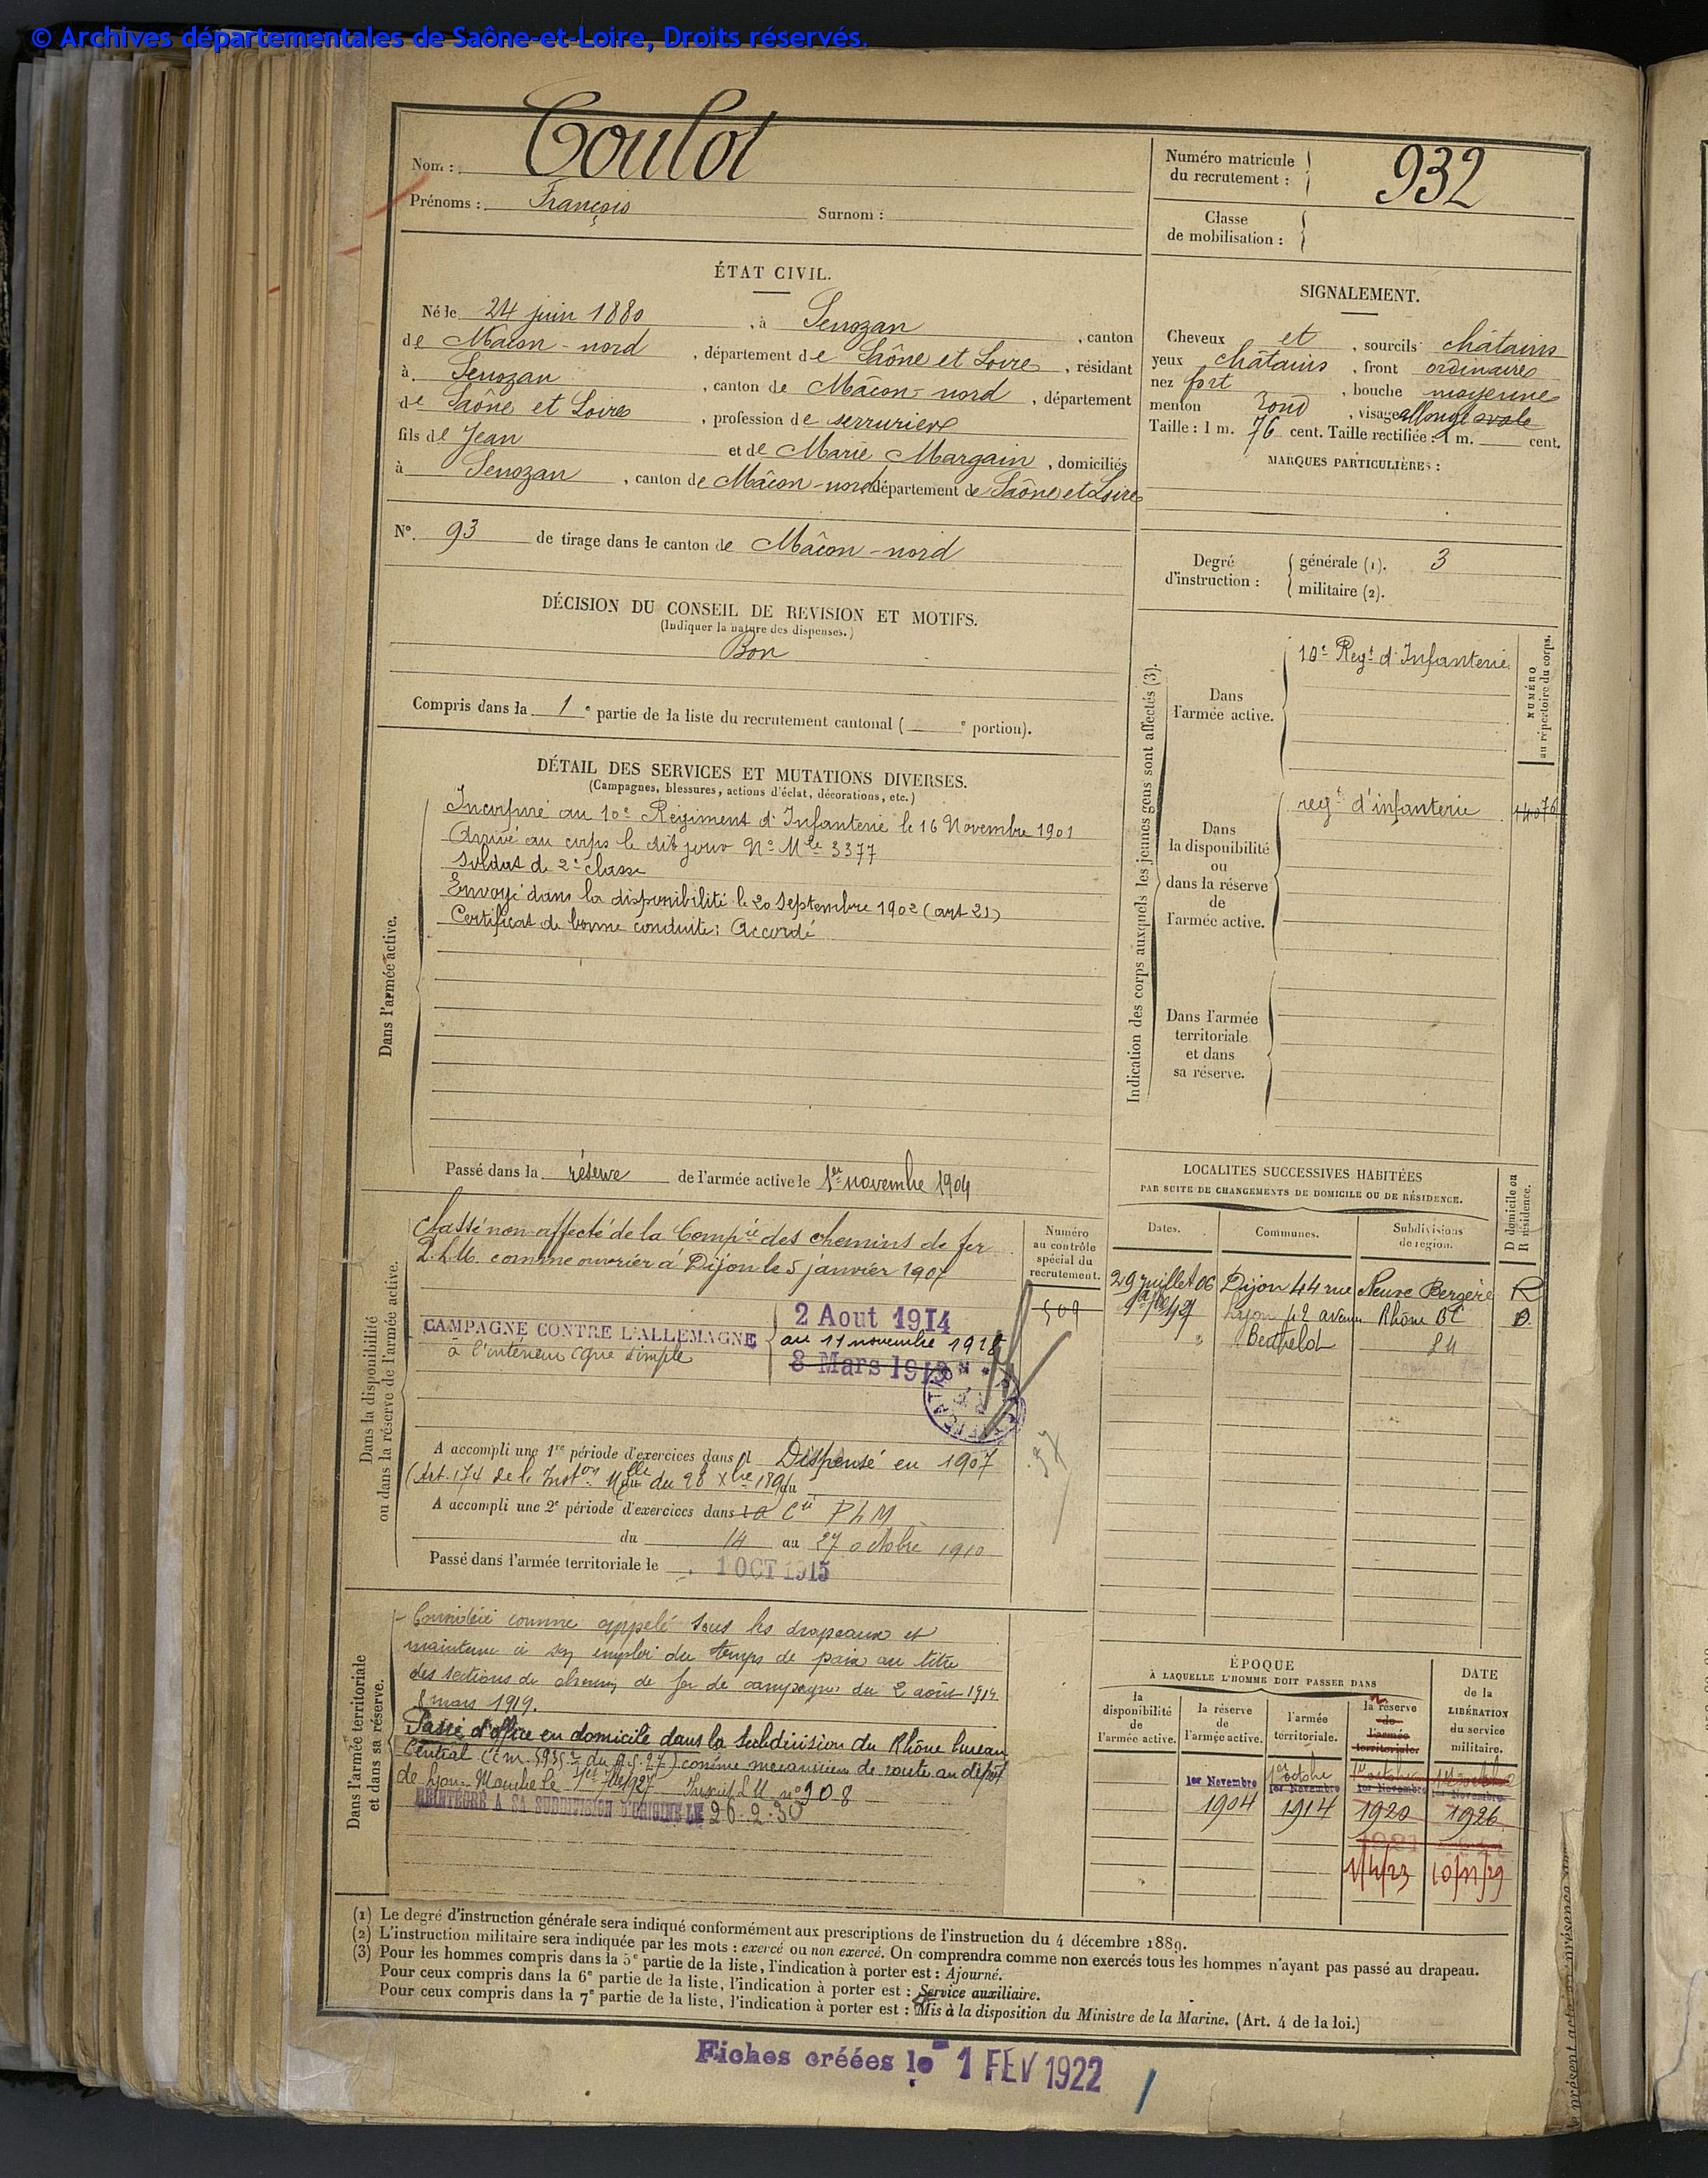 © Archives départementales de Saône-et-Loire, Droits réservés.
Nom : Coulot
Prénoms : François Surnom :
Numéro matricule du recrutement : 932
Classe de mobilisation :
ÉTAT CIVIL.
Né le 24 juin 1880, à Senozan, canton
de Mâcon-nord, département de Saône et Loire, résidant
à Senozan, canton de Mâcon-nord, département
de Saône et Loire, profession de serrurier
fils de Jean et de Marie Margain, domiciliés
à Senozan, canton de Mâcon-nord, département de Saône et Loire
N° 93 de tirage dans le canton de Mâcon-nord
SIGNALEMENT.
Cheveux et, sourcils châtains
yeux châtains, front ordinaire
nez fort, bouche moyenne
menton rond, visage allongé ovale
Taille : 1 m. 76 cent. Taille rectifiée : 1 m. cent.
MARQUES PARTICULIÈRES :
Degré d'instruction : générale (1). 3
militaire (2).
DÉCISION DU CONSEIL DE REVISION ET MOTIFS.
(Indiquer la nature des dispenses.)
Bon
Compris dans la 1e partie de la liste du recrutement cantonal ( e portion).
DÉTAIL DES SERVICES ET MUTATIONS DIVERSES.
(Campagnes, blessures, actions d'éclat, décorations, etc.)
Dans l'armée active.
Incorporé au 10e Régiment d'Infanterie le 16 Novembre 1901
Arrivé au corps le dit jour No Mle 3377
Soldat de 2e classe
Envoyé dans la disponibilité le 20 Septembre 1902 (art 21)
Certificat de bonne conduite : Accordé
Passé dans la réserve de l'armée active le 1er novembre 1904
Indication des corps auxquels les jeunes gens sont affectés (3).
NUMÉRO
au répertoire du corps.
Dans l'armée active.
10e Regt d'Infanterie
Dans la disponibilité ou dans la réserve de l'armée active.
regt d'infanterie
Dans l'armée territoriale et dans sa réserve.
Dans la disponibilité
ou dans la réserve de l'armée active.
Classé non-affecté de la Compie des chemins de fer
P.L.M. comme ouvrier à Dijon le 5 janvier 1907
CAMPAGNE CONTRE L'ALLEMAGNE
à l'intérieur Cgne simple
2 Aout 1914
au 11 novembre 1918
8 Mars 1919
Numéro
au contrôle
spécial du
recrutement.
509
A accompli une 1re période d'exercices dans Dispensé en 1907
(Art. 174 de l'Inston Melle du 28 Xbre 189 au
A accompli une 2e période d'exercices dans la Cie PLM
du 14 au 27 octobre 1910
Passé dans l'armée territoriale le 1 OCT 1915
LOCALITÉS SUCCESSIVES HABITÉES
PAR SUITE DE CHANGEMENTS DE DOMICILE OU DE RÉSIDENCE.
D domicile ou
R résidence.
Dates. Communes. Subdivisions de région.
29 juillet 06 Dijon 44 rue Neuve Bergère R
Lyon 42 avenue Rhône BC D
Berthelot
Dans l'armée territoriale
et dans sa réserve.
Considéré comme appelé sous les drapeaux et
maintenu à son emploi du temps de paix au titre
des sections de chemins de fer de campagne du 2 août 1914
8 mars 1919.
Passé d'office en domicile dans la Subdivision du Rhône bureau
Central (cm. 5935 du 9.5.27) comme mecanicien de route au dépôt
de Lyon Mouche le 1er 1927 No 908
REINTEGRÉ A SA SUBDIVISION D'ORIGINE LE 26.2.30
ÉPOQUE
À LAQUELLE L'HOMME DOIT PASSER DANS
la disponibilité de l'armée active.
la réserve de l'armée active.
l'armée territoriale.
la réserve de l'armée territoriale.
DATE de la LIBÉRATION du service militaire.
1er octobre 1er octobre 1er octobre
1er Novembre 1er Novembre 1er Novembre 1er Novembre
1904 1914 1920 1926
1921
1/4/23 10/11/29
(1) Le degré d'instruction générale sera indiqué conformément aux prescriptions de l'instruction du 4 décembre 1889.
(2) L'instruction militaire sera indiquée par les mots : exercé ou non exercé. On comprendra comme non exercés tous les hommes n'ayant pas passé au drapeau.
(3) Pour les hommes compris dans la 5e partie de la liste, l'indication à porter est : Ajourné.
Pour ceux compris dans la 6e partie de la liste, l'indication à porter est : Service auxiliaire.
Pour ceux compris dans la 7e partie de la liste, l'indication à porter est : Mis à la disposition du Ministre de la Marine. (Art. 4 de la loi.)
Fiches créées le 1 FEV 1922